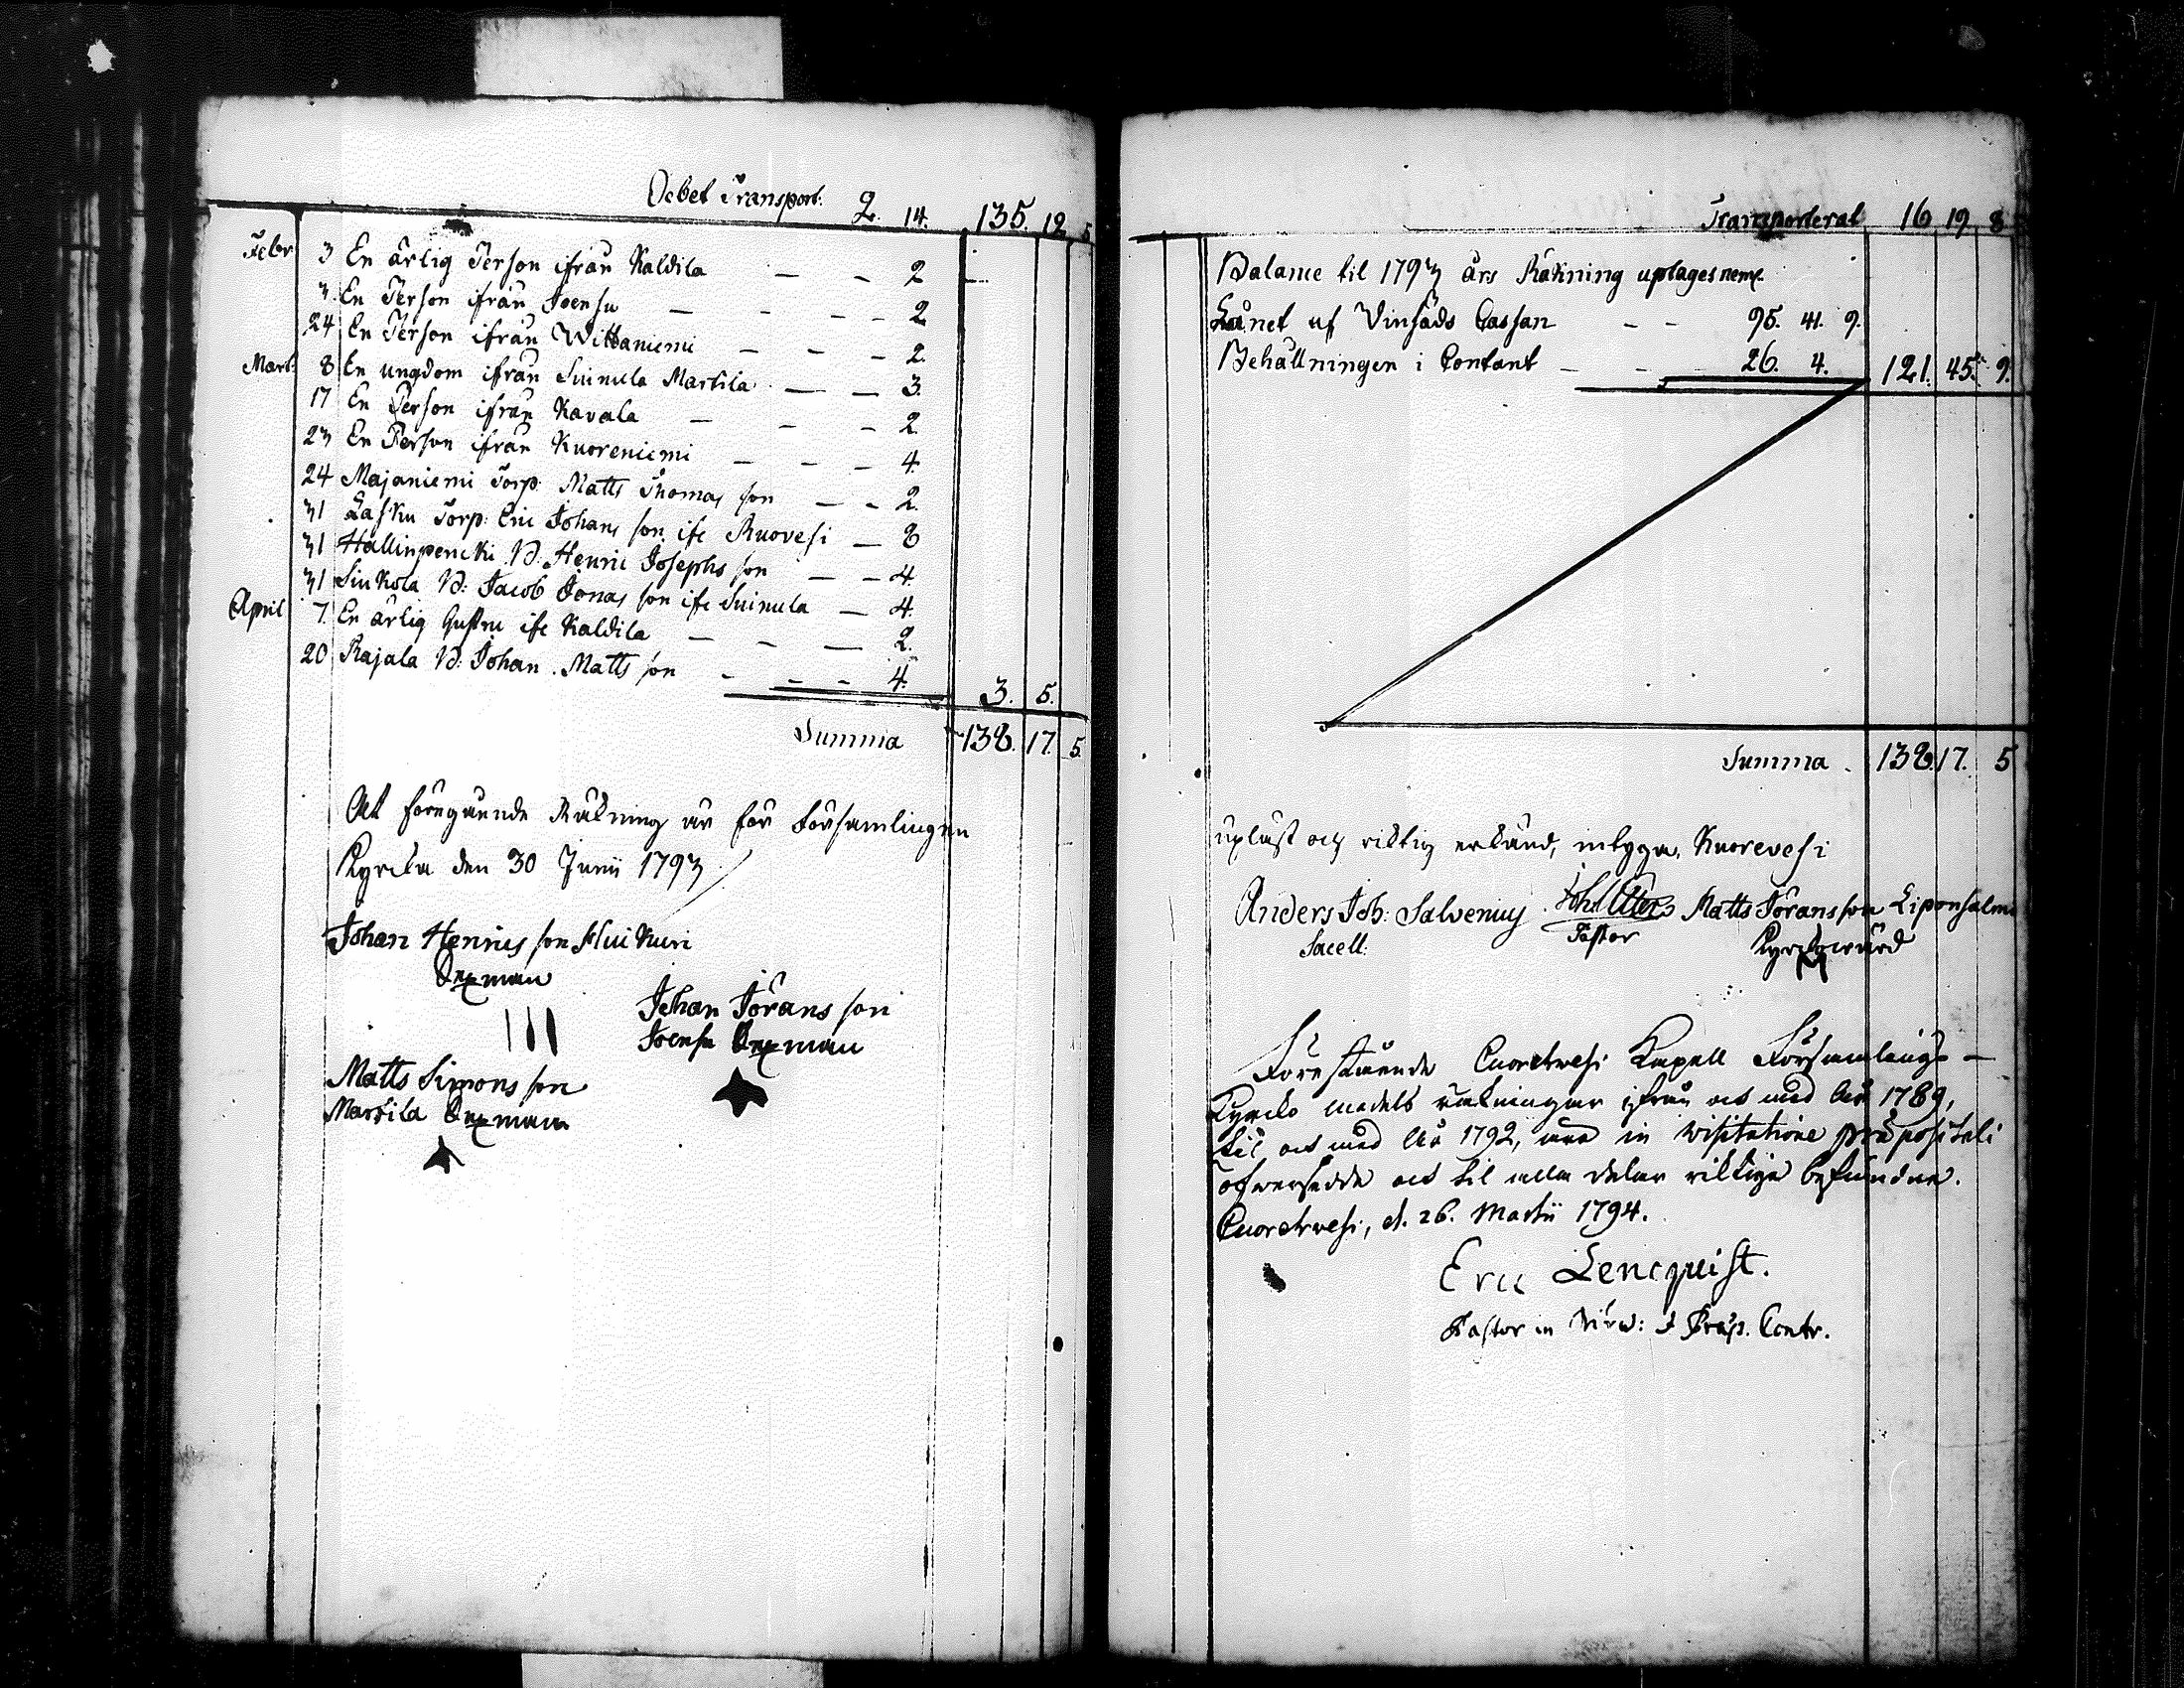 Debet Transport: 2. 14. 135. 12. 5
Febr 3 En ärlig Person ifrån Kaldila — — 2
3. En Person ifrån Joensu — - - - 2
24 En Person ifrån Wittaniemi — — — 2.
Mart: 8 En ungdom ifrån Suinula Martila — — 3.
17 En Person ifrån Kavala — — — 2.
23 En Person ifrån Kuoreniemi — — — 4.
24 Majaniemi Torp: Matts Thomas son — - 2.
31 Lasku Torp: Eric Johans son ifr Ruovesi — 8
31 Hallinpencki B: Henric Josephs son — — 4.
31 Siukola B: Jacob Jonas son ifr Suinula — 4.
April 7. En ärlig Hustru ifr Kaldila — — — 2.
20 Rajala B: Johan Matts son - - - 4. 3. 5.
Summa 138. 17. 5.
At föregående Räkning är för Församlingen
Kyrcka den 30 Junii 1793
Johan Henrics son Huikuri
Sexman
Johan Jörans son
Joensu Sexman
Matts Simons son
Martila Sexman
Transporterat 16 19 8
Balance til 1793 års Räkning uptages neml.
Lånet af Vinsäds Cassan — — 95. 41. 9.
Behållningen i Contant — — 26. 4. 121. 45. 9.
Summa 138. 17. 5
upläst och riktig erkänd, intyga. Kuorevesi
Anders Joh: Salvenius Matts Jörans son Liponsalmi
Sacell. Pastor Kyrckovärd
Förestående Cuorehvesi Kapell Församlings —
Kyrcko medels räkningar ifrån och med År 1789,
til och med År 1792, äro in visitatione præpositali
öfversedde och til alla delar riktiga befundne.
Cuorehvesi, d. 26. Martii 1794.
Eric Lencquist.
Pastor in Præp. Contr.